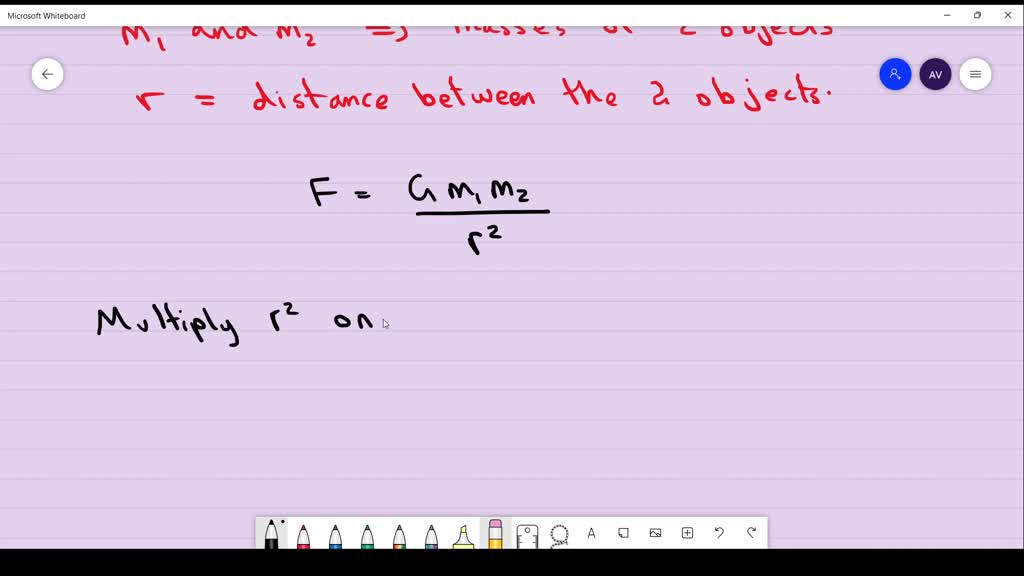 Microsoft Whiteboard
m₁ and m₂ => masses of 2 objects
r = distance between the 2 objects.
AV
F = G m₁ m₂
r²
Multiply r² on
A